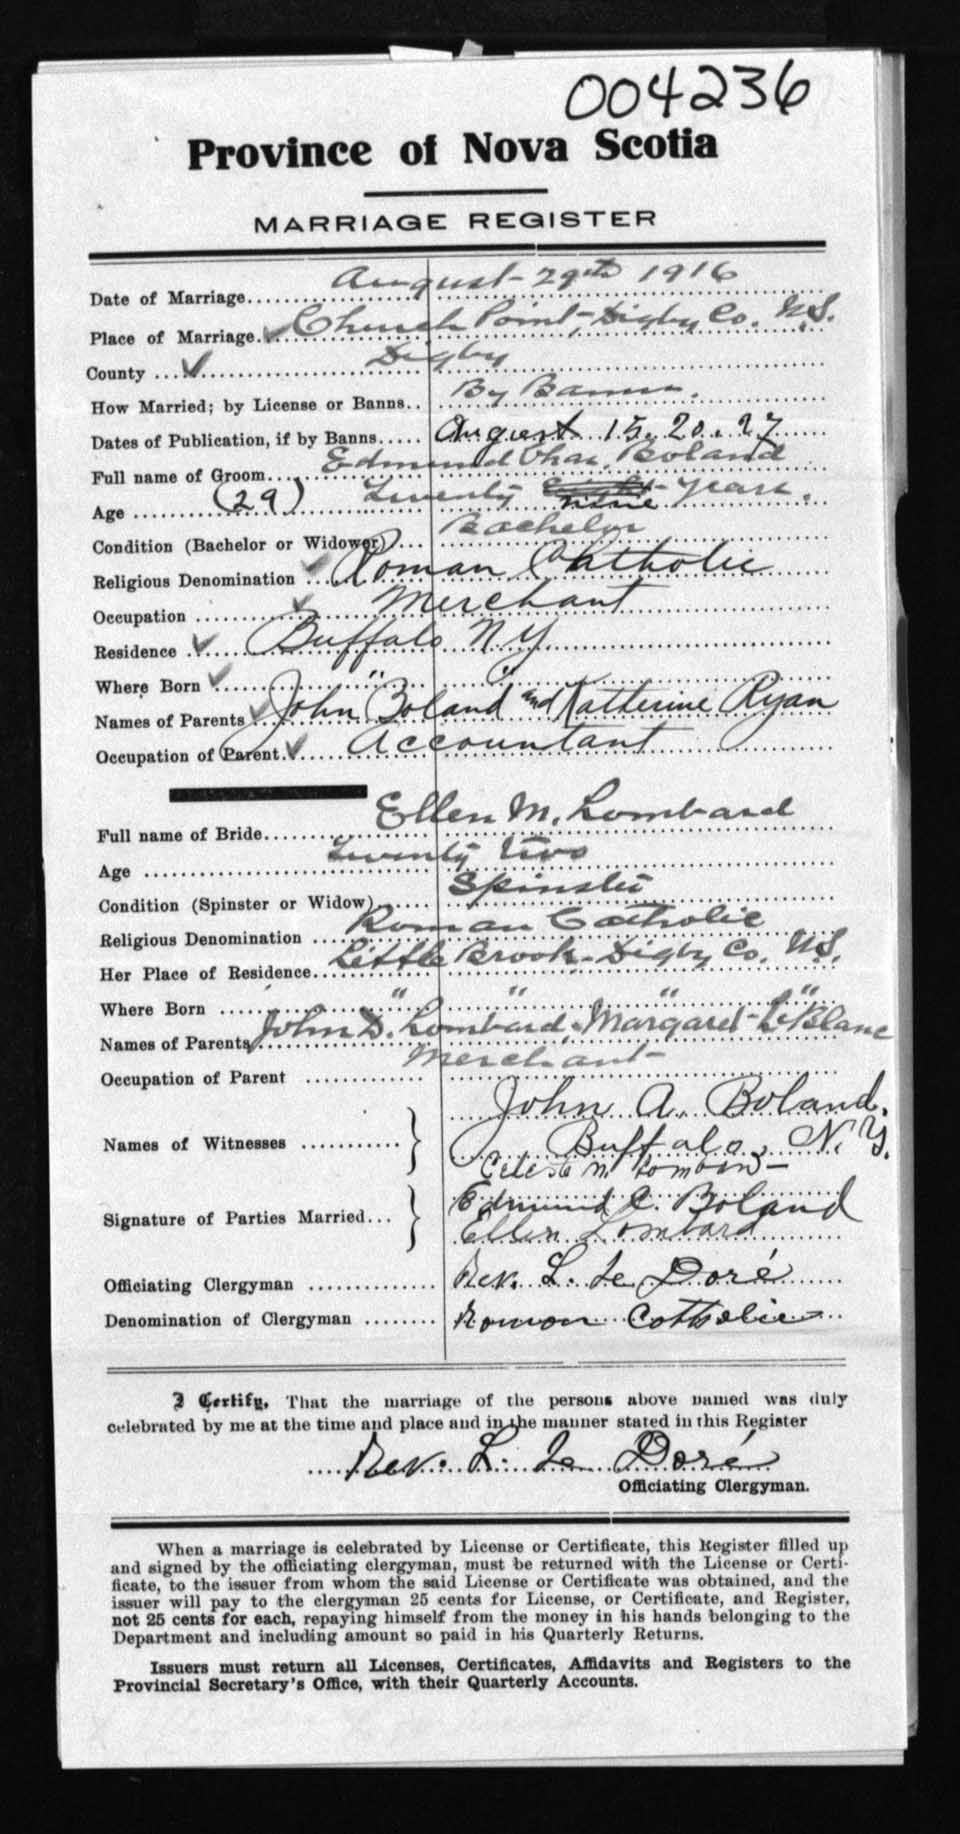 004236
Province of Nova Scotia
MARRIAGE REGISTER
Date of Marriage... August 29th 1916
Place of Marriage. Church Point, Digby Co. N.S.
County ... Digby
How Married; by License or Banns.. By Banns.
Dates of Publication, if by Banns..... August 15. 20. 27
Full name of Groom... Edmund Chas. Boland
Age ... (29) Twenty nine years.
Condition (Bachelor or Widower)... Bachelor
Religious Denomination ... Roman Catholic
Occupation ... Merchant
Residence ... Buffalo N.Y.
Where Born ... " "
Names of Parents ... John Boland and Katherine Ryan
Occupation of Parent. Accountant
Full name of Bride... Ellen M. Lombard
Age ... Twenty two
Condition (Spinster or Widow)... Spinster
Religious Denomination ... Roman Catholic
Her Place of Residence... Little Brook, Digby Co. N.S.
Where Born ... " " " "
Names of Parents John D. Lombard, Margaret LeBlanc
Occupation of Parent ... Merchant
John A. Boland,
Names of Witnesses ... } Buffalo, N.Y.
Celeste M Lombard
Edmund C. Boland
Signature of Parties Married... }
Ellen Lombard
Officiating Clergyman ... Rev. L. Le Doré
Denomination of Clergyman ... Roman Catholic
I Certify, That the marriage of the persons above named was duly
celebrated by me at the time and place and in the manner stated in this Register
.... Rev. L. Le Doré
Officiating Clergyman.
When a marriage is celebrated by License or Certificate, this Register filled up
and signed by the officiating clergyman, must be returned with the License or Certi-
ficate, to the issuer from whom the said License or Certificate was obtained, and the
issuer will pay to the clergyman 25 cents for License, or Certificate, and Register,
not 25 cents for each, repaying himself from the money in his hands belonging to the
Department and including amount so paid in his Quarterly Returns.
Issuers must return all Licenses, Certificates, Affidavits and Registers to the
Provincial Secretary's Office, with their Quarterly Accounts.